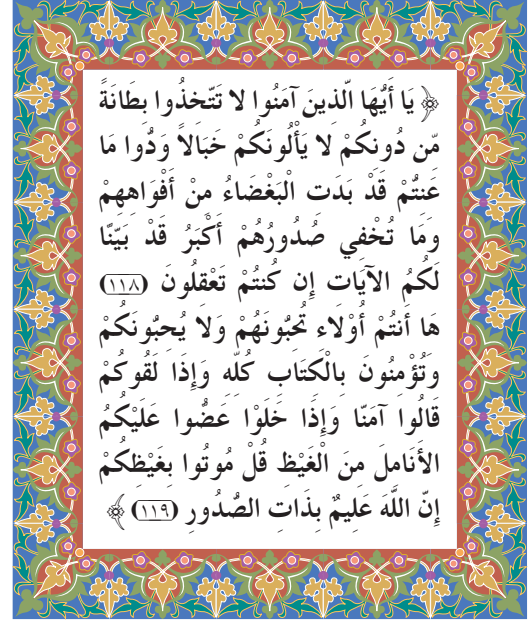 ﴿ يَا أَيُّهَا الَّذينَ آمَنُوا لا تَتَّخذُوا بطَانَةً
مّن دُونكُمْ لا يَأْلُونَكُمْ خَبَالاً وَدُّوا مَا
عَنتُّمْ قَدْ بَدَت الْبَغْضَاءُ منْ أَفْوَاههمْ
ومَا تُخْفي صُدُورُهُمْ أَكْبَرُ قَدْ بَيَّنَّا
لَكُمُ الآيَات إِن كُنتُمْ تَعْقلُونَ (١١٨)
هَا أَنتُمْ أُوْلاء تُحبُّونَهُمْ وَلا يُحبُّونَكُمْ
وَتُؤْمنُونَ بالْكتَاب كُلّه وَإِذَا لَقُوكُمْ
قَالُوا آمَنَّا وَإِذَا خَلَوْا عَضُّوا عَلَيْكُمُ
الأَنَاملَ منَ الْغَيْظ قُلْ مُوتُوا بغَيْظكُمْ
إِنَّ اللَّهَ عَليمٌ بذَات الصُّدُور (١١٩) ﴾